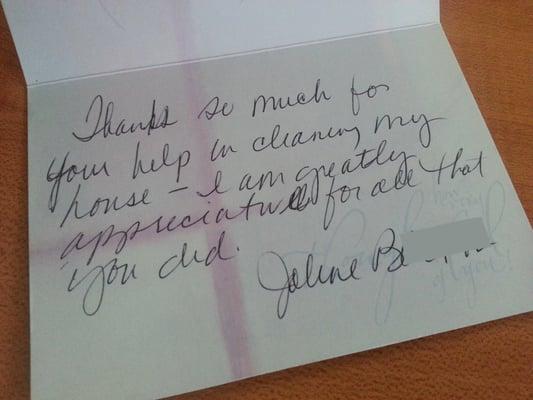 Thanks so much for
your help in cleaning my
house - I am greatly
appreciative for all that
you did.
Joline